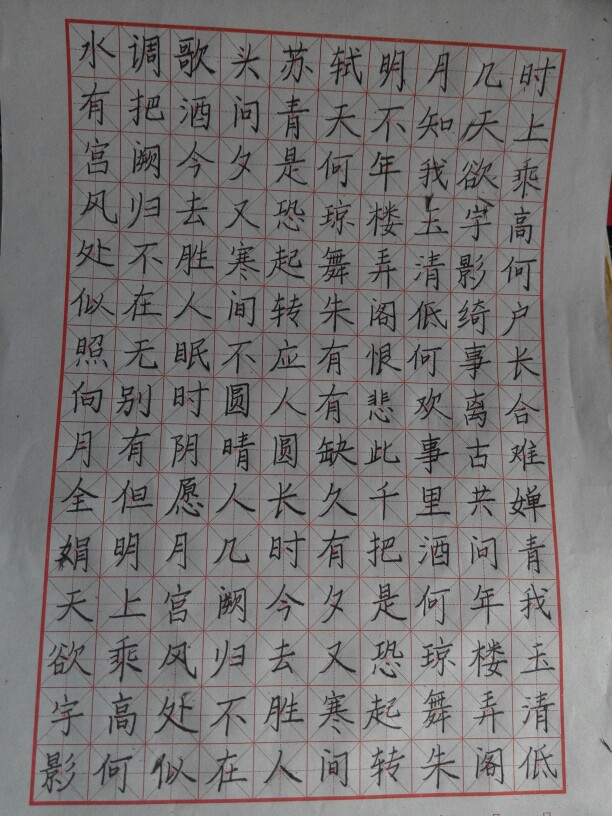 水调歌头苏轼明月几时
有把酒问青天不知天上
宫阙今夕是何年我欲乘
风归去又恐琼楼玉宇高
处不胜寒起舞弄清影何
似在人间转朱阁低绮户
照无眠不应有恨何事长
向别时圆人有悲欢离合
月有阴晴圆缺此事古难
全但愿人长久千里共婵
娟明月几时有把酒问青
天上宫阙今夕是何年我
欲乘风归去又恐琼楼玉
宇高处不胜寒起舞弄清
影何似在人间转朱阁低